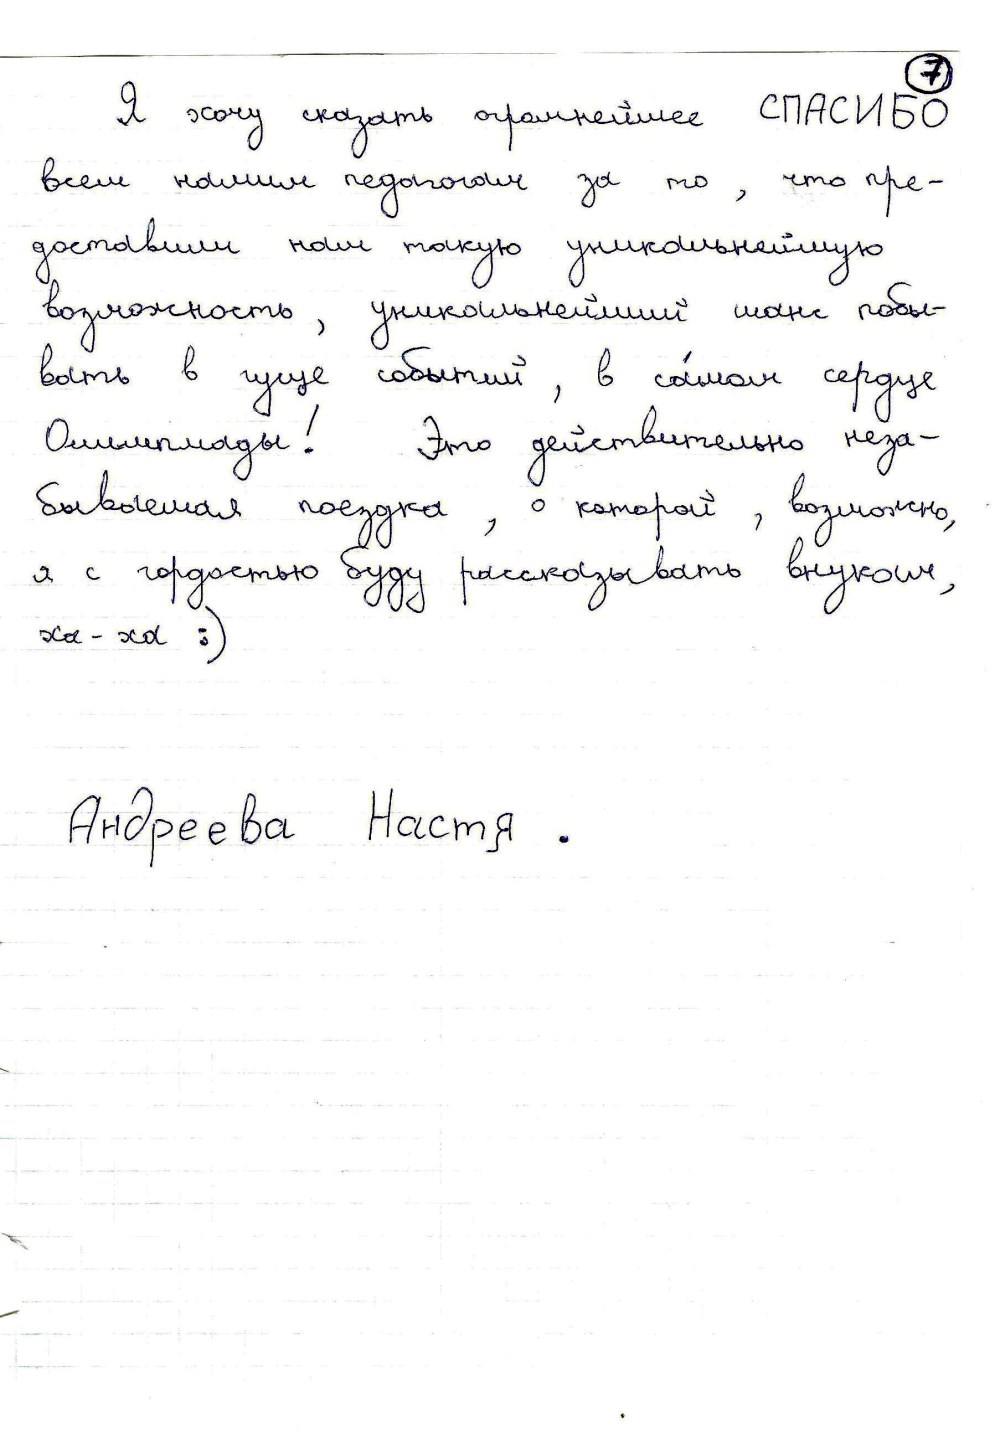 7
Я хочу сказать огромнейшее СПАСИБО
всем нашим педагогам за то, что пре-
доставили нам такую уникальнейшую
возможность, уникальнейший шанс побы-
вать в гуще событий, в са́мом сердце
Олимпиады! Это действительно неза-
бываемая поездка, о которой, возможно,
я с гордостью буду рассказывать внукам,
ха-ха :)
Андреева Настя.